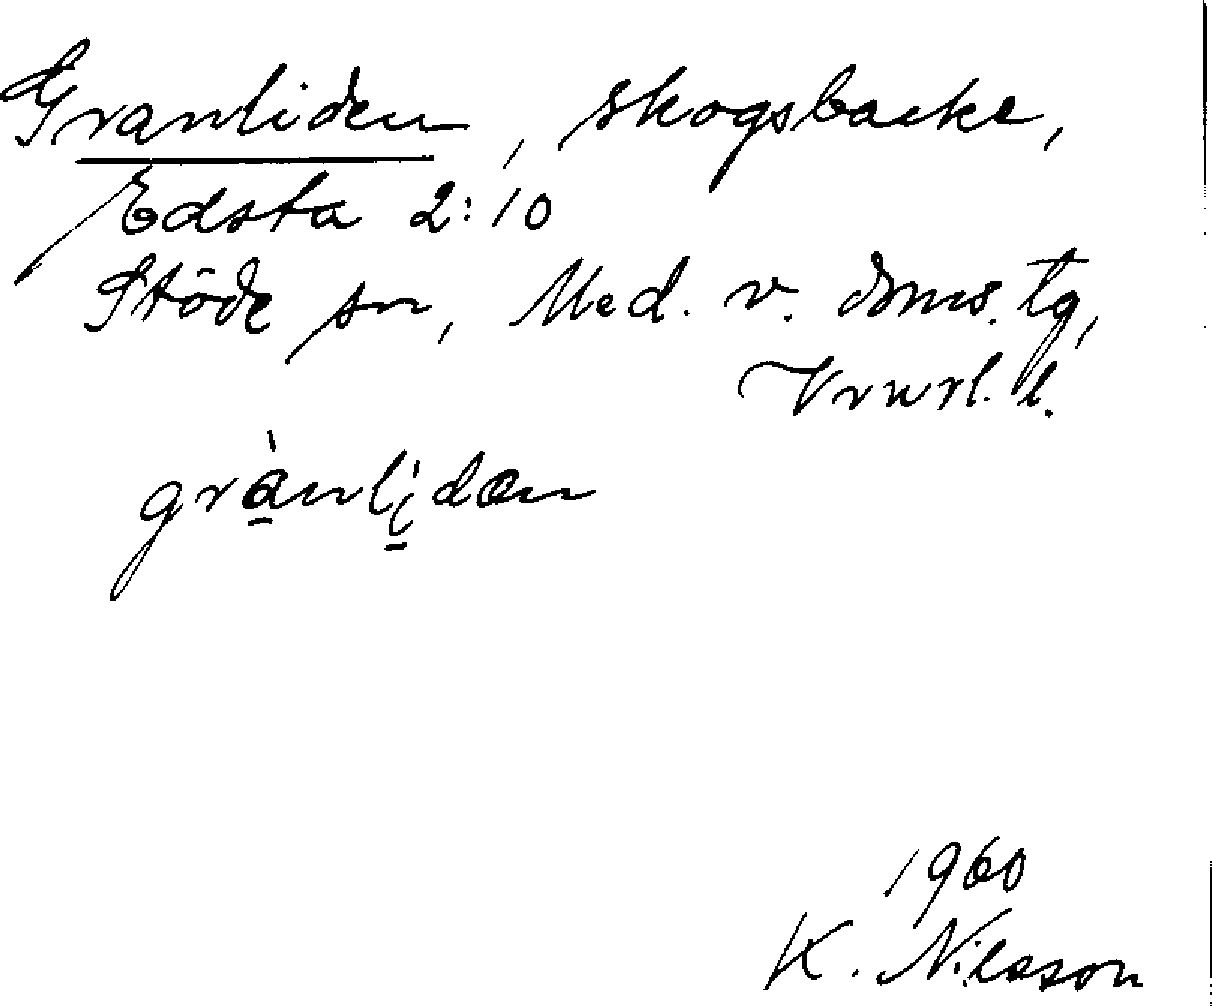 Granliden, skogsbacke,
Edsta 2:10
Stöde sn, Med. v. doms. tg,
Vrnrl. l.
grànlídæn
1960
K. Nilsson